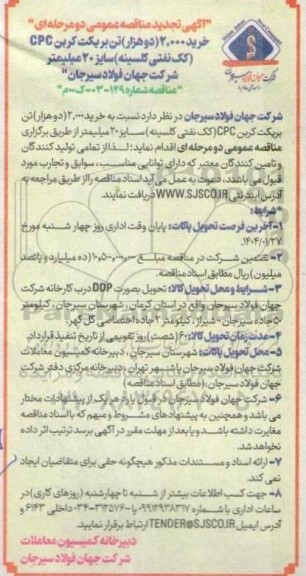 "آگهی تجدید مناقصه عمومی دو مرحله ای"
خرید ۲,۰۰۰ (دو هزار) تن بریکت کربن CPC
(کک نفتی کلسینه) سایز ۲۰ میلیمتر
شرکت جهان فولاد سیرجان
"مناقصه شماره ۱۲۹-۰۳-ک-م"
شرکت جهان فولاد سیرجان در نظر دارد نسبت به خرید ۲,۰۰۰ (دو هزار) تن
بریکت کربن CPC (کک نفتی کلسینه) سایز ۲۰ میلیمتر از طریق برگزاری
مناقصه عمومی دو مرحله ای اقدام نماید؛ لذا از تمامی تولید کنندگان
و تامین کنندگان معتبر که دارای توانایی مناسب، سوابق و تجارب مورد
قبول می باشند، دعوت به عمل می آید اسناد مناقصه را از طریق مراجعه به
آدرس اینترنتی WWW.SJSCO.IR دریافت نمایند.
-شرایط:
۱-آخرین فرصت تحویل پاکات: پایان وقت اداری روز چهار شنبه مورخ
۱۴۰۴/۰۱/۲۷
۲- تضمین شرکت در مناقصه مبلغ ۱۰,۵۰۰,۰۰۰,۰۰۰ (ده میلیارد و پانصد
میلیون) ریال مطابق اسناد مناقصه.
۳-شرایط و محل تحویل کالا: تحویل بصورت DDP درب کارخانه شرکت
جهان فولاد سیرجان واقع در استان کرمان، شهرستان سیرجان، کیلومتر
۵۰ جاده سیرجان - شیراز، کیلومتر ۲ جاده اختصاصی گل گهر.
۴-مدت زمان تحویل کالا: ۶۰ (شصت) روز تقویمی از تاریخ تنفیذ قرارداد.
۵-محل تحویل پاکات: شهرستان سیرجان، دبیرخانه کمیسیون معاملات
شرکت جهان فولاد سیرجان یا شهر تهران، دبیرخانه مرکزی دفتر شرکت
جهان فولاد سیرجان. (مطابق اسناد مناقصه)
۶- شرکت جهان فولاد سیرجان در قبول یا رد هر یک از پیشنهادات مختار
می باشد و همچنین به پیشنهادهای مشروط و مبهم که با اسناد مناقصه
مغایرت داشته باشد و یا بعد از مهلت مقرر در آگهی برسد ترتیب اثر داده
نخواهد شد.
۷- ارائه اسناد و مستندات مذکور هیچگونه حقی برای متقاضیان ایجاد
نمی کند.
۸- جهت کسب اطلاعات بیشتر از شنبه تا چهارشنبه (روزهای کاری) در
ساعات اداری با شماره ۰۹۹۱۲۹۳۸۳۱۷ یا ۳۱۲۵۷۶-۰۳۴ داخلی ۶۱۴۳ و
آدرس ایمیل TENDER@SJSCO.IR ارتباط برقرار نمایید.
دبیرخانه کمیسیون معاملات
شرکت جهان فولاد سیرجان